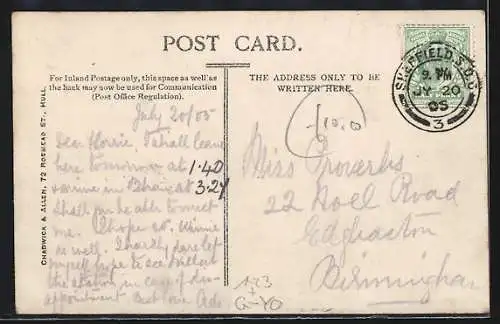 POST CARD.
For Inland Postage only, this space as well as
the back may now be used for Communication
(Post Office Regulation).
THE ADDRESS ONLY TO BE
WRITTEN HERE.
CHADWICK & ALLEN, 72 ROSMEAD ST., HULL.
SHEFFIELD S.O.
9. PM
JY 20
05
3
July 20/05
Dear Florrie, I shall leave
here tomorrow at 1.40
arrive in B'ham at 3.27
Shall you be able to meet
me. I hope so. Winnie
as well. I hardly dare let
myself hope to see at
the station, in case of dis-
appointment. Best love
Miss Proverbs
22 Noel Road
Edgbaston
Birmingham
123